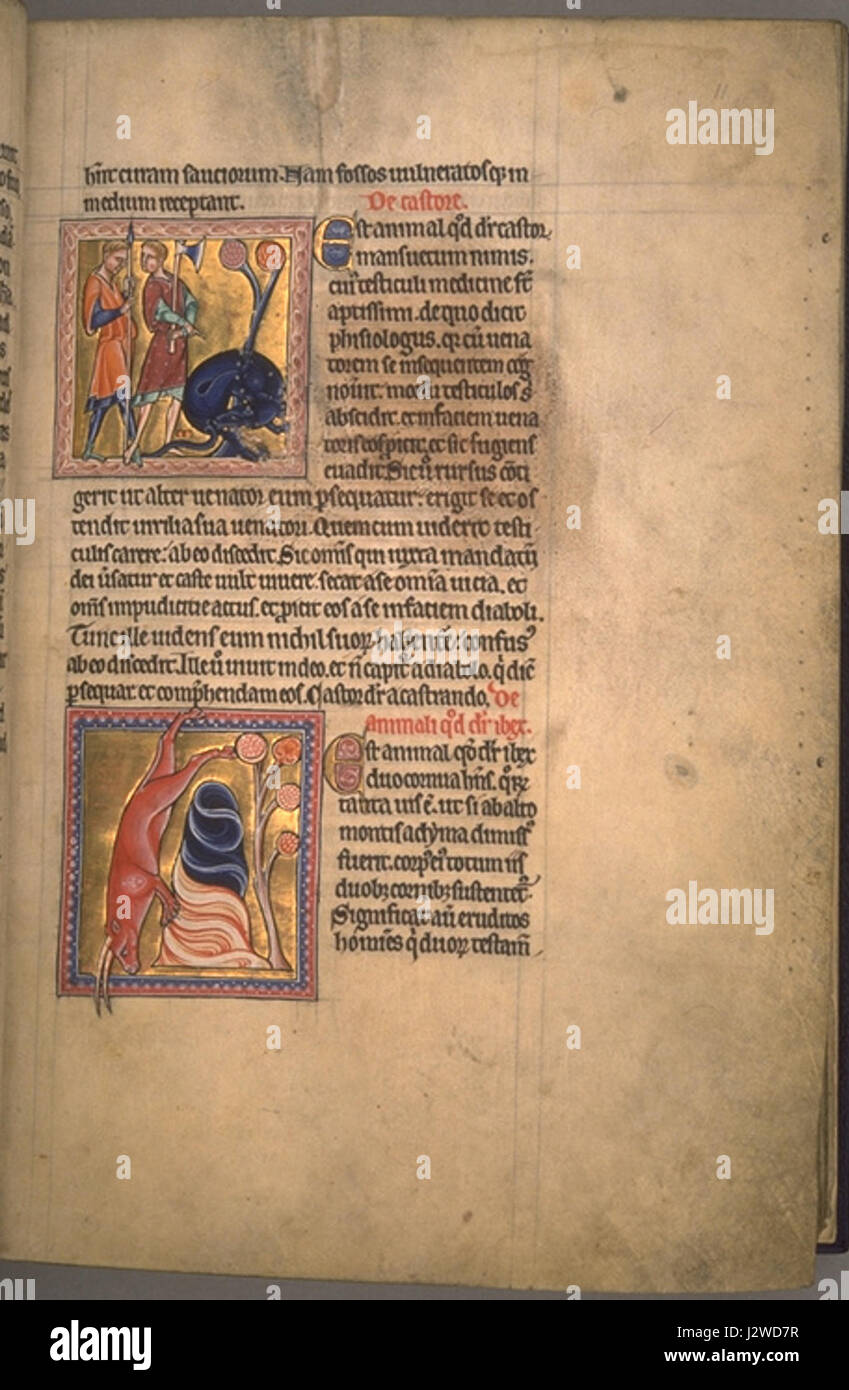 11
hñt curam sauciorum. Nam fossos uulneratosq; in
medium receptant. De castore.
Est animal qd̃ dr̃ castor
mansuetum nimis.
cui᷒ testiculi medicine st̃
aptissimi. de quo dicit
phisiologus. qr cũ uena
torem se insequentem cog
nouit. morsu testiculos s̃
abscidit. et in faciem uena
toris eos ꝓicit. et sic fugiens
euadit. Sic ũ rursus cõti
gerit ut alter uenator eum ꝑsequatur. erigit se et os
tendit uirilia sua uenatori. Quem cum uiderit testi
culis carere. ab eo discedit. Sic om̃s qui iuxta mandatũ
dei ũsatur et caste uult uiuere. secat a se omĩa uicia. et
om̃s impudicitie actus. et ꝓicit eos a se in faciem diaboli.
Tunc ille uidens eum nichil suoꝝ habentẽ: confusꝰ
ab eo discedit. Ille ũ uiuit in deo. et ñ capit̃ a diabolo. q̇ dic̃
ꝑsequar et comp̃hendam eos. Castor dr̃ a castrando. De
animali qd̃ dr̃ ibex.
Est animal qd̃ dr̃ ibex
duo cornua hñs. quoꝝ
tanta uis ẽ. ut si ab alto
montis ad yma dimissꝰ
fuerit. corpꝰ eiꝰ totum iis
duobꝫ cornibꝫ sustentet̃.
Significat aũt eruditos
homines q̇ duoꝝ testam̃
alamy
Image ID: J2WD7R
www.alamy.com